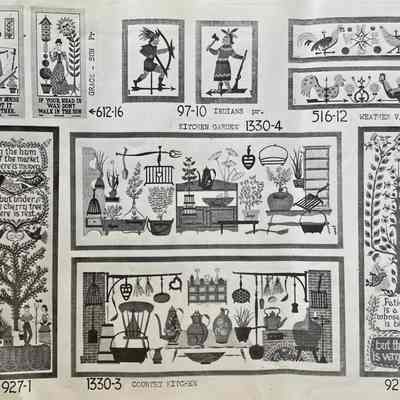 IF YOUR HEAD IS
WAX DON'T
WALK IN THE SUN
GRACE - SUN Pr
←612-16
97-10 INDIANS pr.
516-12 WEATHER V
KITCHEN GARDEN 1330-4
the hum
of the market
there is
but under
cherry tree
there is rest.
927-1
1330-3 COUNTRY KITCHEN
Patie
is a
whose
is bi
but th
is very
92